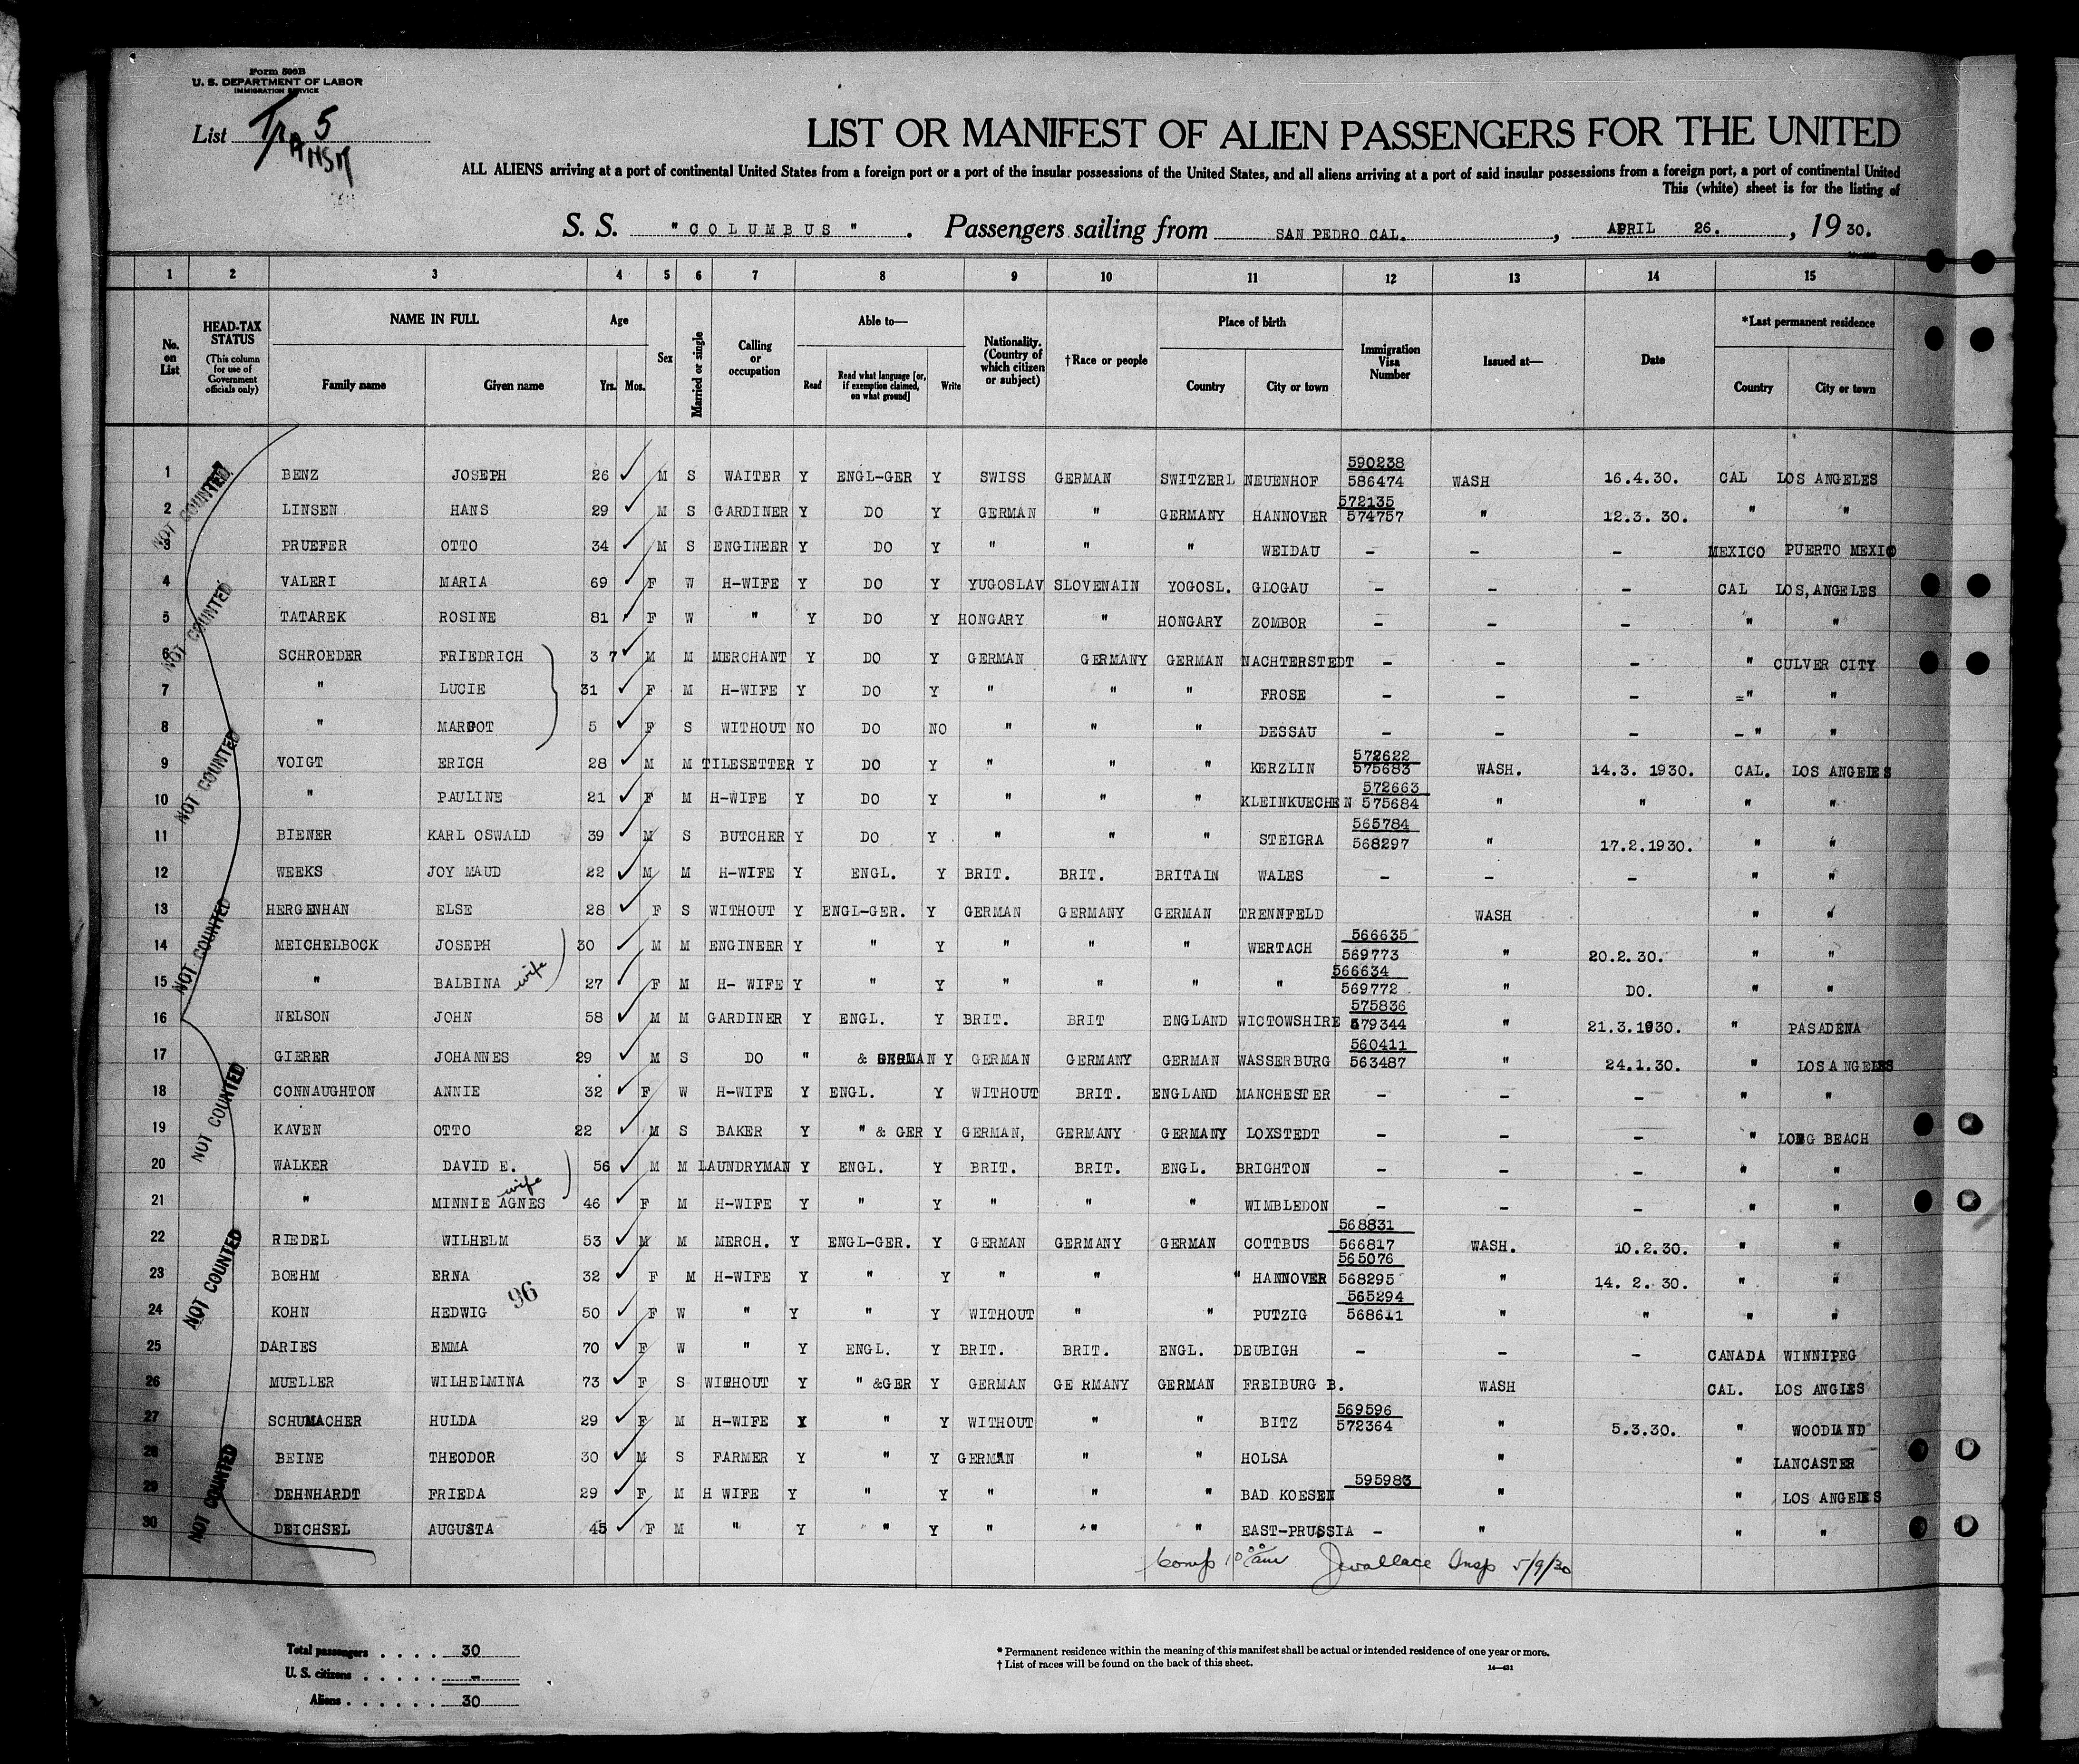 Form 500B
U. S. DEPARTMENT OF LABOR
IMMIGRATION SERVICE
List 5
LIST OR MANIFEST OF ALIEN PASSENGERS FOR THE UNITED
ALL ALIENS arriving at a port of continental United States from a foreign port or a port of the insular possessions of the United States, and all aliens arriving at a port of said insular possessions from a foreign port, a port of continental United
This (white) sheet is for the listing of
S. S. "COLUMBUS". Passengers sailing from SAN PEDRO CAL., APRIL 26., 19 30.
1 2 3 4 5 6 7 8 9 10 11 12 13 14 15
No. on List HEAD-TAX STATUS (This column for use of Government officials only) NAME IN FULL Family name Given name Age Yrs. Mos. Sex Married or single Calling or occupation Able to— Read Read what language [or, if exemption claimed, on what ground] Write Nationality. (Country of which citizen or subject) †Race or people Place of birth Country City or town Immigration Visa Number Issued at— Date *Last permanent residence Country City or town
1 BENZ JOSEPH 26 M S WAITER Y ENGL-GER Y SWISS GERMAN SWITZERL NEUENHOF 590238 586474 WASH 16.4.30. CAL LOS ANGELES
2 LINSEN HANS 29 M S GARDINER Y DO Y GERMAN " GERMANY HANNOVER 572135 574757 " 12.3. 30. " "
3 PRUEFER OTTO 34 M S ENGINEER Y DO Y " " " WEIDAU - - - MEXICO PUERTO MEXICO
4 VALERI MARIA 69 F W H-WIFE Y DO Y YUGOSLAV SLOVENAIN YOGOSL. GLOGAU - - - CAL LOS,ANGELES
5 TATAREK ROSINE 81 F W " Y DO Y HONGARY " HONGARY ZOMBOR - - - " "
6 SCHROEDER FRIEDRICH 3 7 M M MERCHANT Y DO Y GERMAN GERMANY GERMAN NACHTERSTEDT - - - " CULVER CITY
7 " LUCIE 31 F M H-WIFE Y DO Y " " " FROSE - - - =" "
8 " MARGOT 5 F S WITHOUT NO DO NO " " " DESSAU - - - -" "
9 VOIGT ERICH 28 M M TILESETTER Y DO Y " " " KERZLIN 572622 575683 WASH. 14.3. 1930. CAL. LOS ANGELES
10 " PAULINE 21 F M H-WIFE Y DO Y " " " KLEINKUECHEN 572663 575684 " " " "
11 BIENER KARL OSWALD 39 M S BUTCHER Y DO Y " " " STEIGRA 565784 568297 " 17.2.1930. " "
12 WEEKS JOY MAUD 22 M M H-WIFE Y ENGL. Y BRIT. BRIT. BRITAIN WALES - - - " "
13 HERGENHAN ELSE 28 F S WITHOUT Y ENGL-GER. Y GERMAN GERMANY GERMAN TRENNFELD WASH " "
14 MEICHELBOCK JOSEPH 30 M M ENGINEER Y " Y " " " WERTACH 566635 569773 " 20.2.30. " "
15 " BALBINA wife 27 F M H- WIFE Y " Y " " " " 566634 569772 " DO. " "
16 NELSON JOHN 58 M M GARDINER Y ENGL. Y BRIT. BRIT ENGLAND WICTOWSHIRE 575836 579344 " 21.3.1930. " PASADENA
17 GIERER JOHANNES 29 M S DO " & GERMAN Y GERMAN GERMANY GERMAN WASSERBURG 560411 563487 " 24.1.30. " LOS ANGELES
18 CONNAUGHTON ANNIE 32 F W H-WIFE Y ENGL. Y WITHOUT BRIT. ENGLAND MANCHESTER - - - " "
19 KAVEN OTTO 22 M S BAKER Y " & GER Y GERMAN, GERMANY GERMANY LOXSTEDT - - - " LONG BEACH
20 WALKER DAVID E. 56 M M LAUNDRYMAN Y ENGL. Y BRIT. BRIT. ENGL. BRIGHTON - - - " "
21 " MINNIE AGNES wife 46 F M H-WIFE Y " Y " " " WIMBLEDON - - - " "
22 RIEDEL WILHELM 53 M M MERCH. Y ENGL-GER. Y GERMAN GERMANY GERMAN COTTBUS 568831 566817 WASH. 10.2.30. " "
23 BOEHM ERNA 32 F M H-WIFE Y " Y " " " HANNOVER 565076 568295 " 14. 2. 30. " "
24 KOHN HEDWIG 96 50 F W " Y " Y WITHOUT " " PUTZIG 565294 568611 " " " "
25 DARIES EMMA 70 F W " Y ENGL. Y BRIT. BRIT. ENGL. DEUBIGH - - - CANADA WINNIPEG
26 MUELLER WILHELMINA 73 F S WITHOUT Y " &GER Y GERMAN GE RMANY GERMAN FREIBURG B. WASH CAL. LOS ANGLES
27 SCHUMACHER HULDA 29 F M H-WIFE Y " Y WITHOUT " " BITZ 569596 572364 " 5.3.30. " WOODLAND
28 BEINE THEODOR 30 M S FARMER Y " Y GERMAN " " HOLSA " " LANCASTER
29 DEHNHARDT FRIEDA 29 F M H WIFE Y " Y " " " BAD KOESEN 595983 " " LOS ANGELES
30 DEICHSEL AUGUSTA 45 F M " Y " Y " " " EAST-PRUSSIA - " " "
NOT COUNTED
NOT COUNTED
NOT COUNTED
NOT COUNTED
NOT COUNTED
NOT COUNTED
NOT COUNTED
Comp 10 00 am J Wallace Insp 5/9/30
Total passengers . . . . 30
U. S. citizens . . . . . -
Aliens . . . . . . 30
* Permanent residence within the meaning of this manifest shall be actual or intended residence of one year or more.
† List of races will be found on the back of this sheet.
14—421